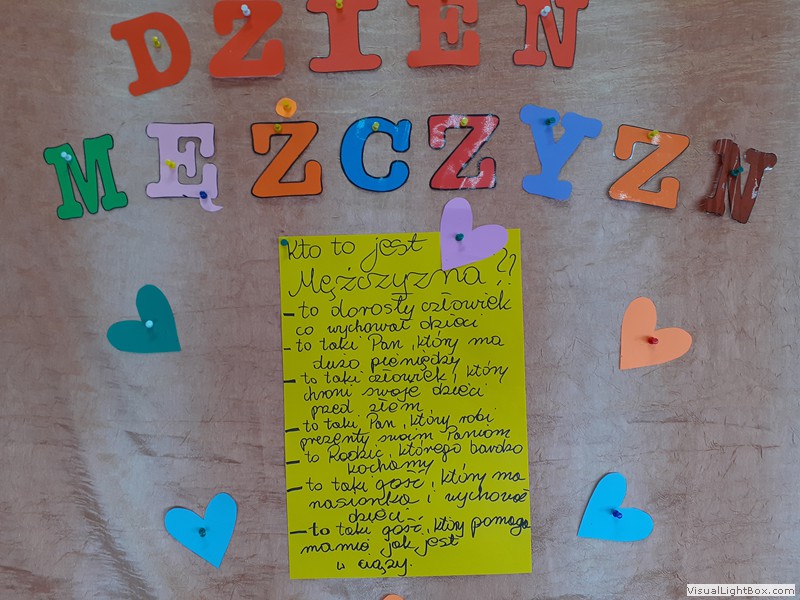 DZIEŃ
MĘŻCZYZN
Kto to jest
Mężczyzna ??
- to dorosły człowiek
co wychował dzieci
- to taki Pan, który ma
dużo pieniędzy
- to taki człowiek, który
chroni swoje dzieci
przed złem
- to taki Pan, który robi
prezenty swoim Paniom
- to Rodzic, którego bardzo
kochamy
- to taki gość, który ma
nasionka i wychować
dzieci
- to taki gość, który pomaga
mamie jak jest
w ciąży.
VisualLightBox.com